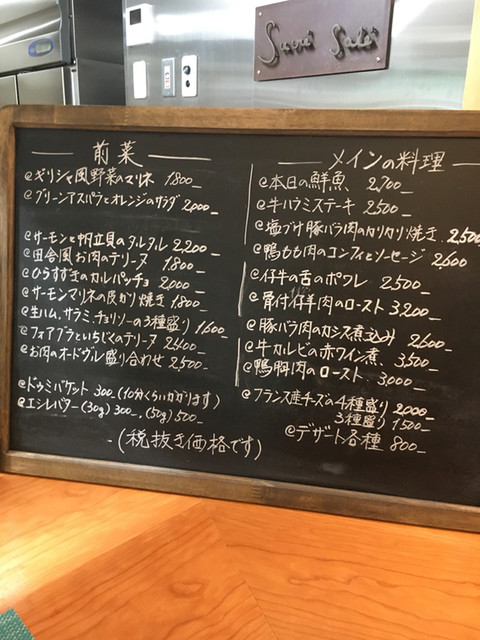 前菜
@ギリシャ風野菜のマリネ 1,800_
@グリーンアスパラとオレンジのサラダ 2,000_
@サーモンと帆立貝のタルタル 2,200_
@田舎風お肉のテリーヌ 1,800_
@ひらすずきのカルパッチョ 2,000_
@サーモンマリネの皮がり焼き 1,800_
@生ハム、サラミ、チョリソーの3種盛り 1,600_
@フォアグラといちじくのテリーヌ 2,500_
@お肉のオードヴル盛り合わせ 2,500_
@ドゥミバゲット 300_(10分くらいかかります)
@エシレバター(30g)300_,(50g)500_
-(税抜き価格です)
メインの料理
@本日の鮮魚 2,700_
@牛ハラミステーキ 2,500_
@塩づけ豚バラ肉のカリカリ焼き 2,500
@鴨もも肉のコンフィとソーセージ 2,600
@仔牛の舌のポワレ 2,500_
@骨付仔羊肉のロースト 3,200_
@豚バラ肉のカシス煮込み 2,600_
@牛カルビの赤ワイン煮 3,500_
@鴨胸肉のロースト 3,000_
@フランス産チーズの4種盛り 2,000_
3種盛り 1,500_
@デザート各種 800_